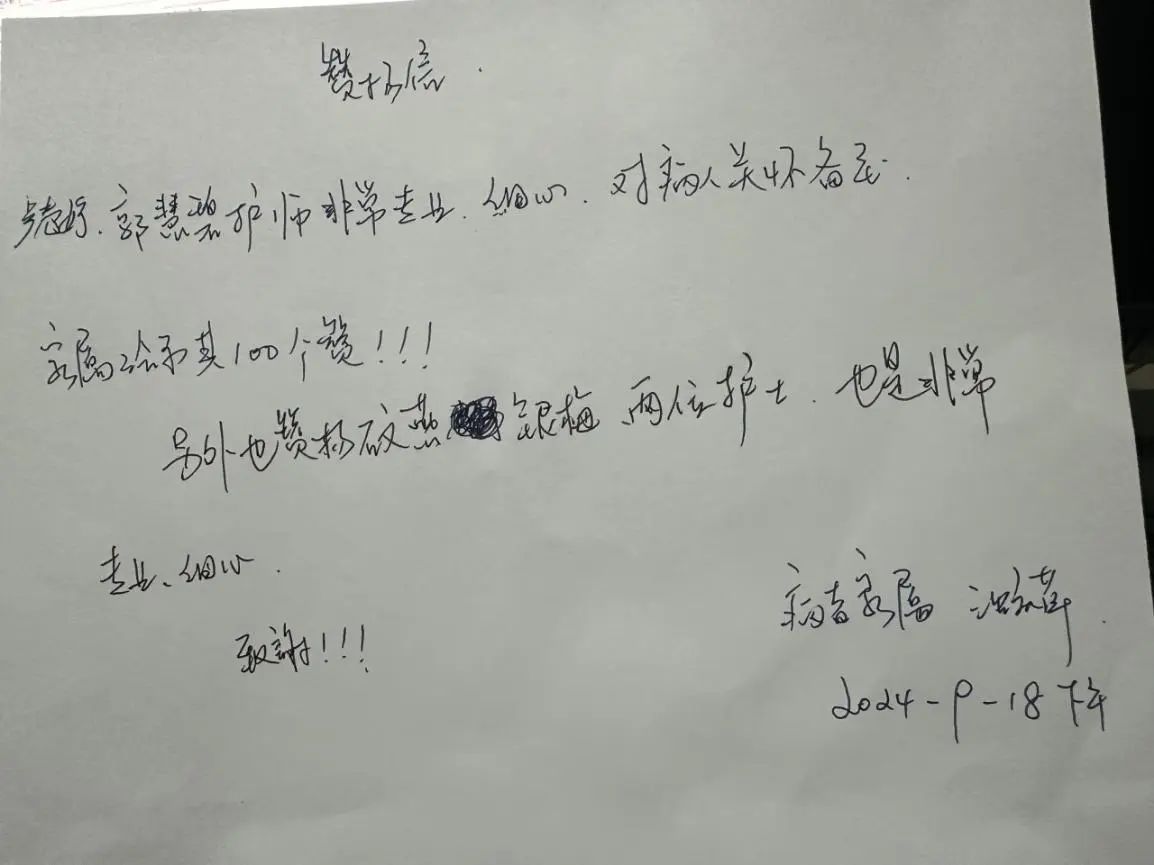 赞扬信.
郭慧碧护师非常专业、细心、对病人关怀备至.
家属给予其100个赞!!!
另外也赞扬 银梅两位护士、也是非常
专业、细心.
致謝!!!
病者家属
2024-9-18下午